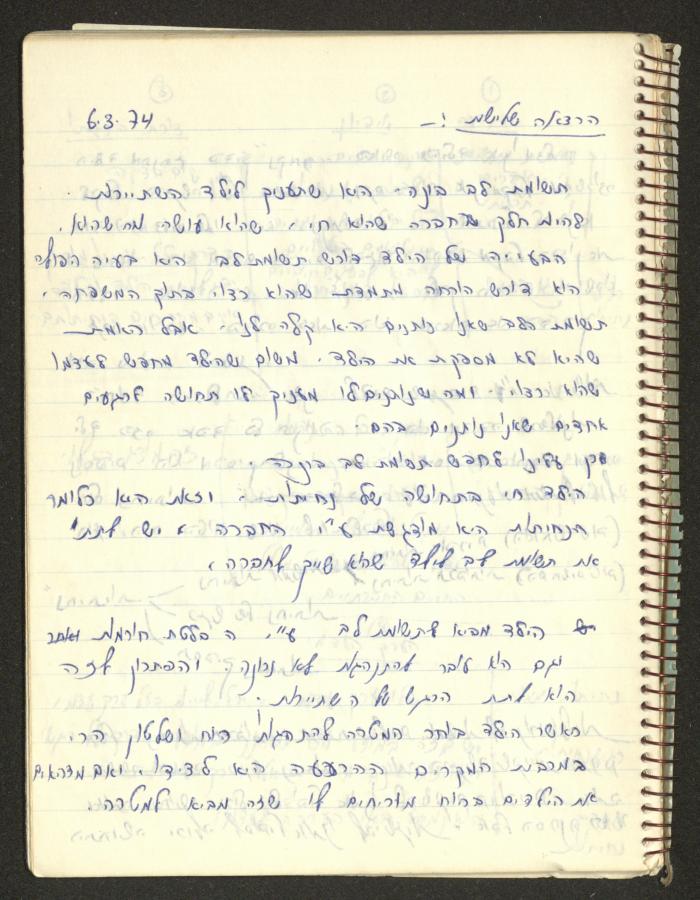 הרצאה שלישית :- 6.3.74
תשומת לב בונה - היא שתעניק לילד השתייכות.
להיות חלק מהחברה שהוא חי, שהוא עושה מה שהוא.
הבעייה של הילד דורש תשומת לב היא בעיה כפולה
הוא דורש הוכחה מתמדת שהוא רצוי בתוך המשפחה.
תשומת הלב שאנו נותנים היא קלה לנו. אבל האמת
שהיא לא מספקת את הילד. משום שהילד מחפש לעצמו
שהוא רצוי. ומה שנותנים לו מעניק לו תחושה לרגעים
אחדים שאנו נותנים בהם.
לכן עלינו לחפש תשומת לב בונה.
הילד חי בתחושה של נחיתות. וזאת היא כלומר
הנחיתות היא מודגשת ע"י החברה, יש לתת
את תשומת לב לילד שהוא שייך לחברה,
הילד מביא לתשומת לב ע"י. הבלטת
וגם הוא עובר להתנהגות לא נכונה, והפתרון לזה
הוא לתת הרגש של השתייכות.
כאשר הילד בוחר המטרה להתנהגות כוח ושלטון הרי
במרבית המקרים ההרעשה היא לצידו, ואם מצחאים
את הילדים בכוח מוכיחים לו שזה מביא למטרה.